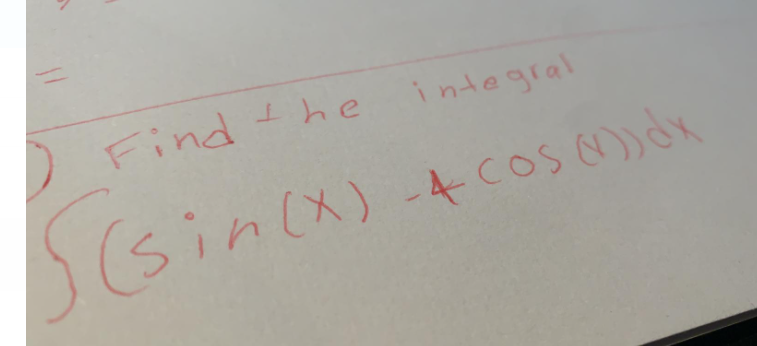 =
) Find the integral
∫(sin(x) - 4 cos(x))dx